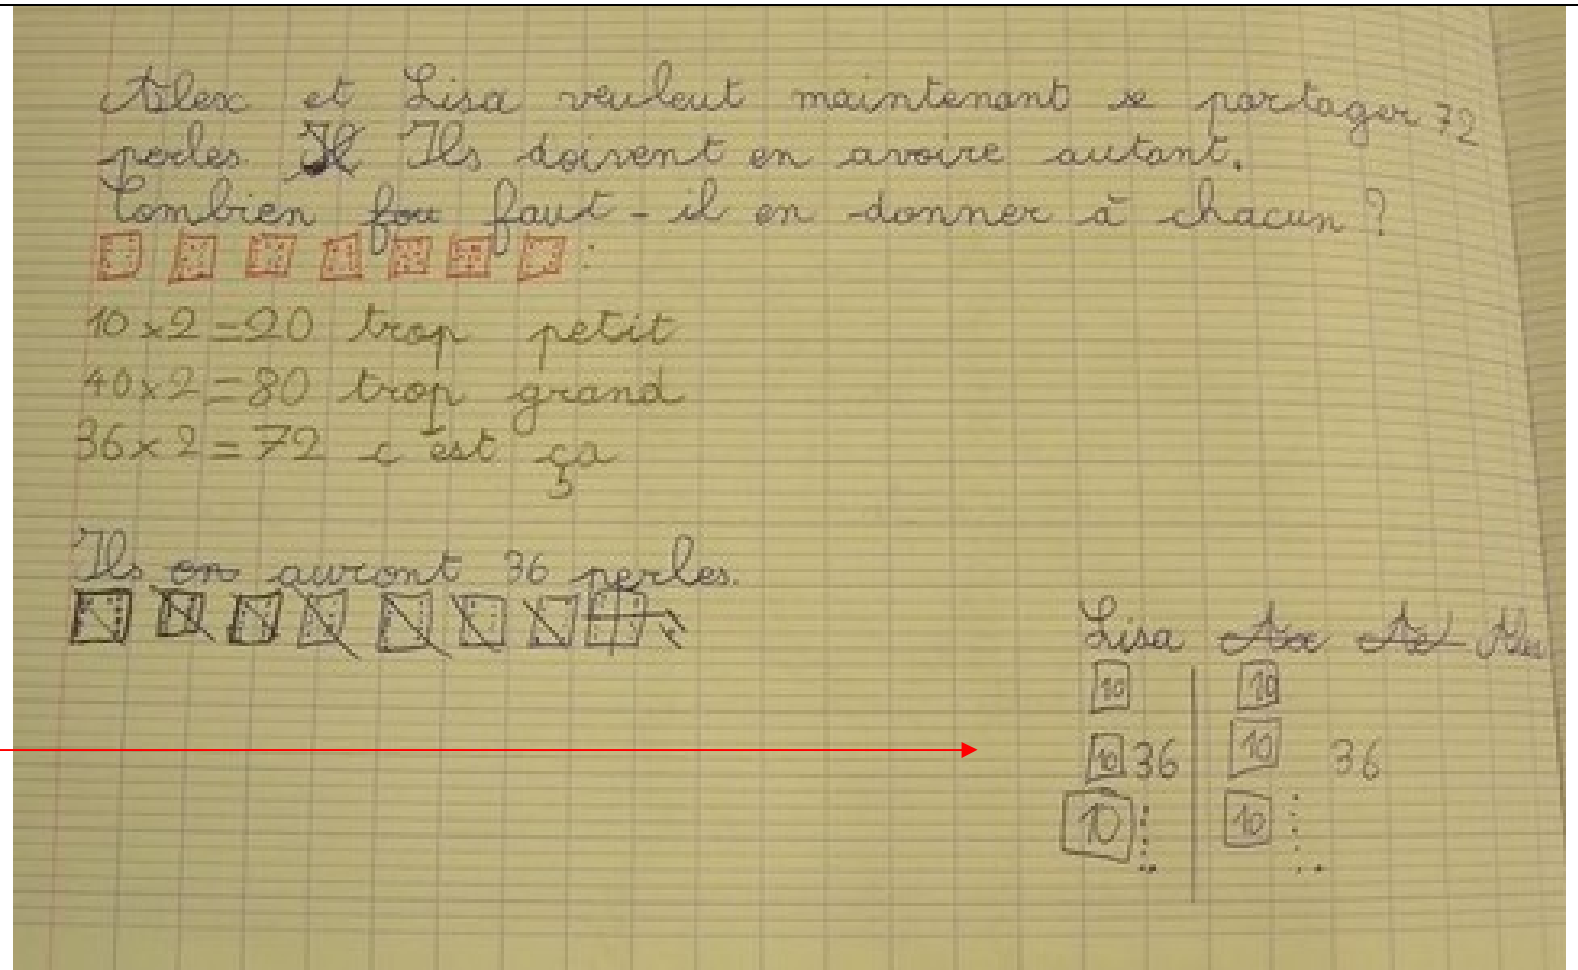 Alex et Lisa veuleut maintenant se partager 72
perles. Il Ils doivent en avoire autant.
Combien fau faut-il en donner à chacun ?
:
10 x 2 = 20 trop petit
40 x 2 = 80 trop grand
36 x 2 = 72 c'est ça
5
Ils en auront 36 perles.
Lisa Alex
10 10
10 36 10 36
10 10